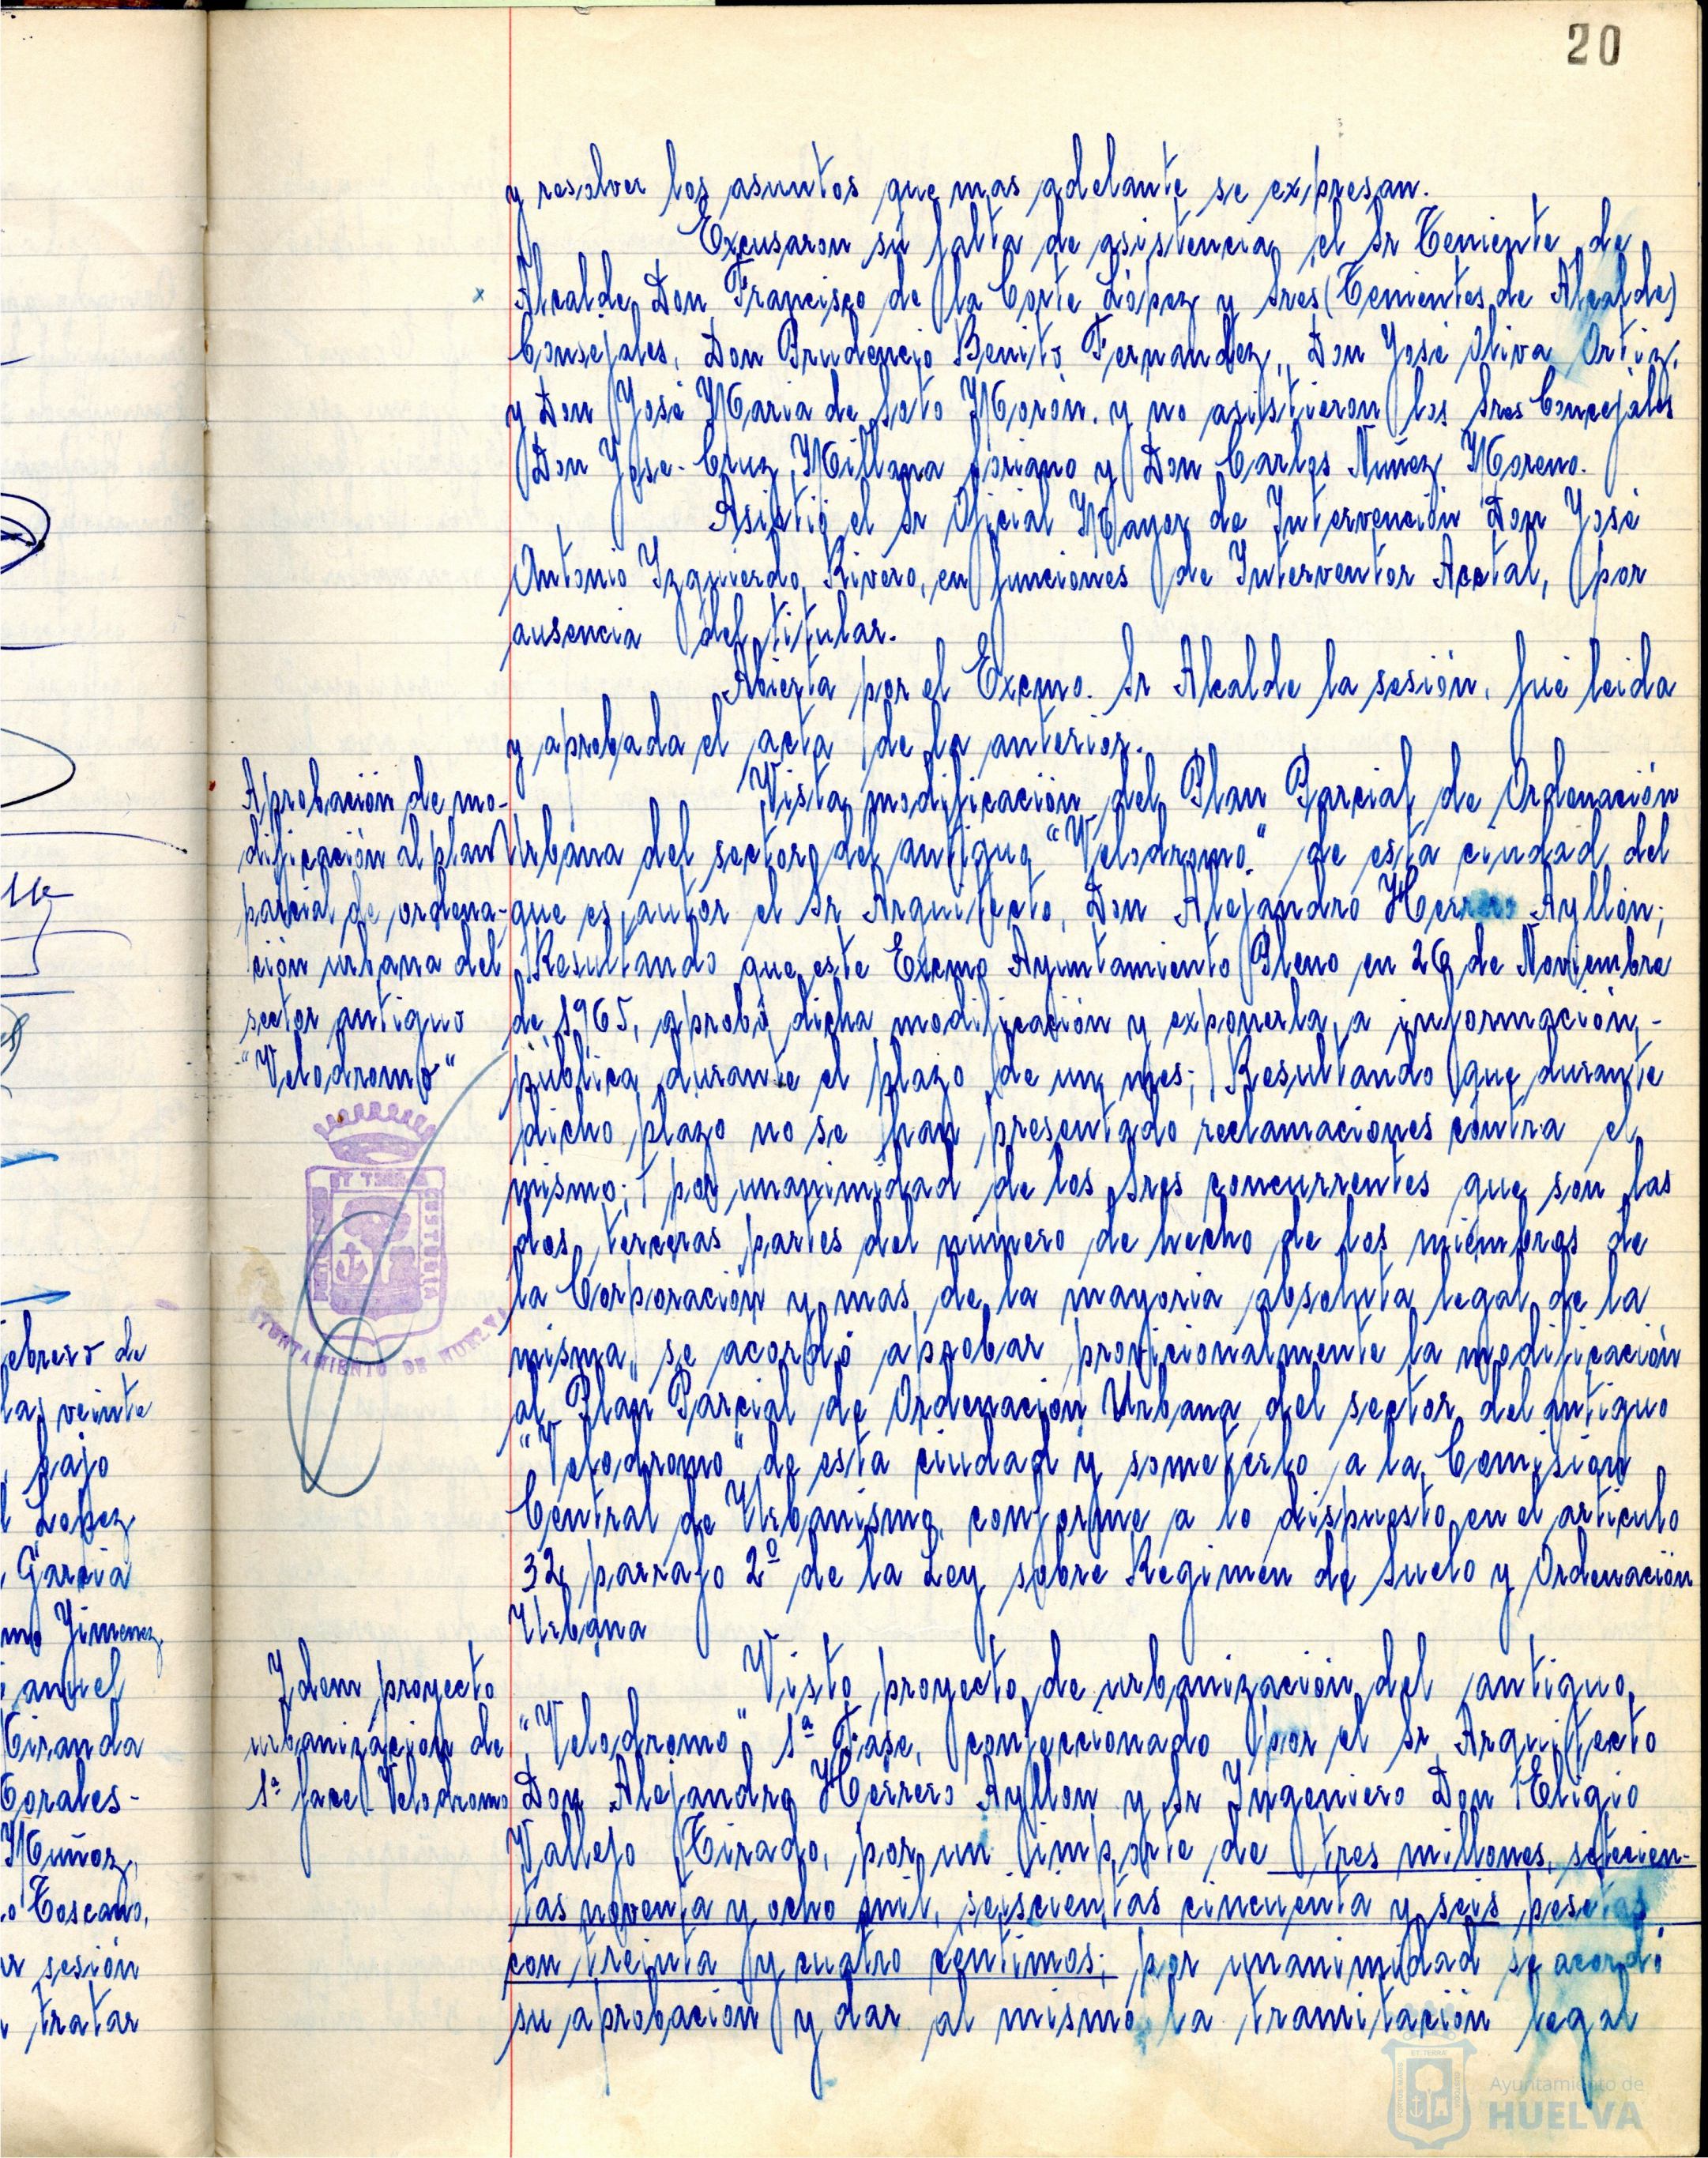 20
y resolver los asuntos que mas adelante se expresan.
Excusaron su falta de asistencia el Sr Teniente de
x Alcalde Don Francisco de la Corte López y Sres (Tenientes de Alcalde)
Consejales, Don Prudencio Benito Fernandez, Don José Oliva Ortiz,
y Don José Maria de Soto Morón. y no asistieron los Sres Concejales
Don Jose-Cruz Millana Soriano y Don Carlos Nuñez Moreno.
Asistió el Sr Oficial Mayor de Intervención Don José
Antonio Izquierdo Rivero, en funciones de Interventor Acctal, por
ausencia del titular.
Abierta por el Excmo. Sr Alcalde la sesión, fué leida
y aprobada el acta de la anterior.
Aprobación de mo-
dificación al plan
parcial de ordena-
ción urbana del
sector antiguo
"Velodromo"
Vista modificación del Plan Parcial de Ordenación
Urbana del sectoro del antiguo "Velodromo" de esta ciudad del
que es autor el Sr Arquitecto, Don Alejandro Herrero Ayllón;
Resultando que este Excmo Ayuntamiento Pleno en 26 de Noviembre
de 1965, aprobó dicha modificación y exponerla a información-
pública durante el plazo de un mes; Resultando que durante
dicho plazo no se han presentado reclamaciones contra el
mismo; por unanimidad de los Sres concurrentes que son las
dos terceras partes del número de hecho de los miembros de
la Corporación y mas de la mayoria absoluta legal de la
misma, se acordó aprobar provicionalmente la modificación
al Plan Parcial de Ordenación Urbana del sector del antiguo
"Velodromo" de esta ciudad y someterlo a la Comisión
Central de Urbanismo, conforme a lo dispuesto en el articulo
32 parrafo 2º de la Ley sobre Regimen de Suelo y Ordenación
Urbana
Idem proyecto
urbanización de
1ª face Velodromo
Visto proyecto de urbanización del antiguo
"Velodromo" 1ª Fase, confeccionado por el Sr Arquitecto
Don Alejandro Herrero Ayllon y Sr Ingeniero Don Eligio
Vallejo Tirado, por un importe de tres millones, setecien-
tas noventa y ocho mil, seiscientas cincuenta y seis pesetas
con treinta y cuatro centimos; por unanimidad se acordó
su aprobación y dar al mismo la tramitación legal
ebrero de
las veinte
, bajo
l Lopez
, Garcia
mo Jimenez,
anuel
Tiranda
Corales-
Muñoz,
o Toscano,
r sesión
tratar
AYUNTAMIENTO DE HUELVA
Ayuntamiento de
HUELVA